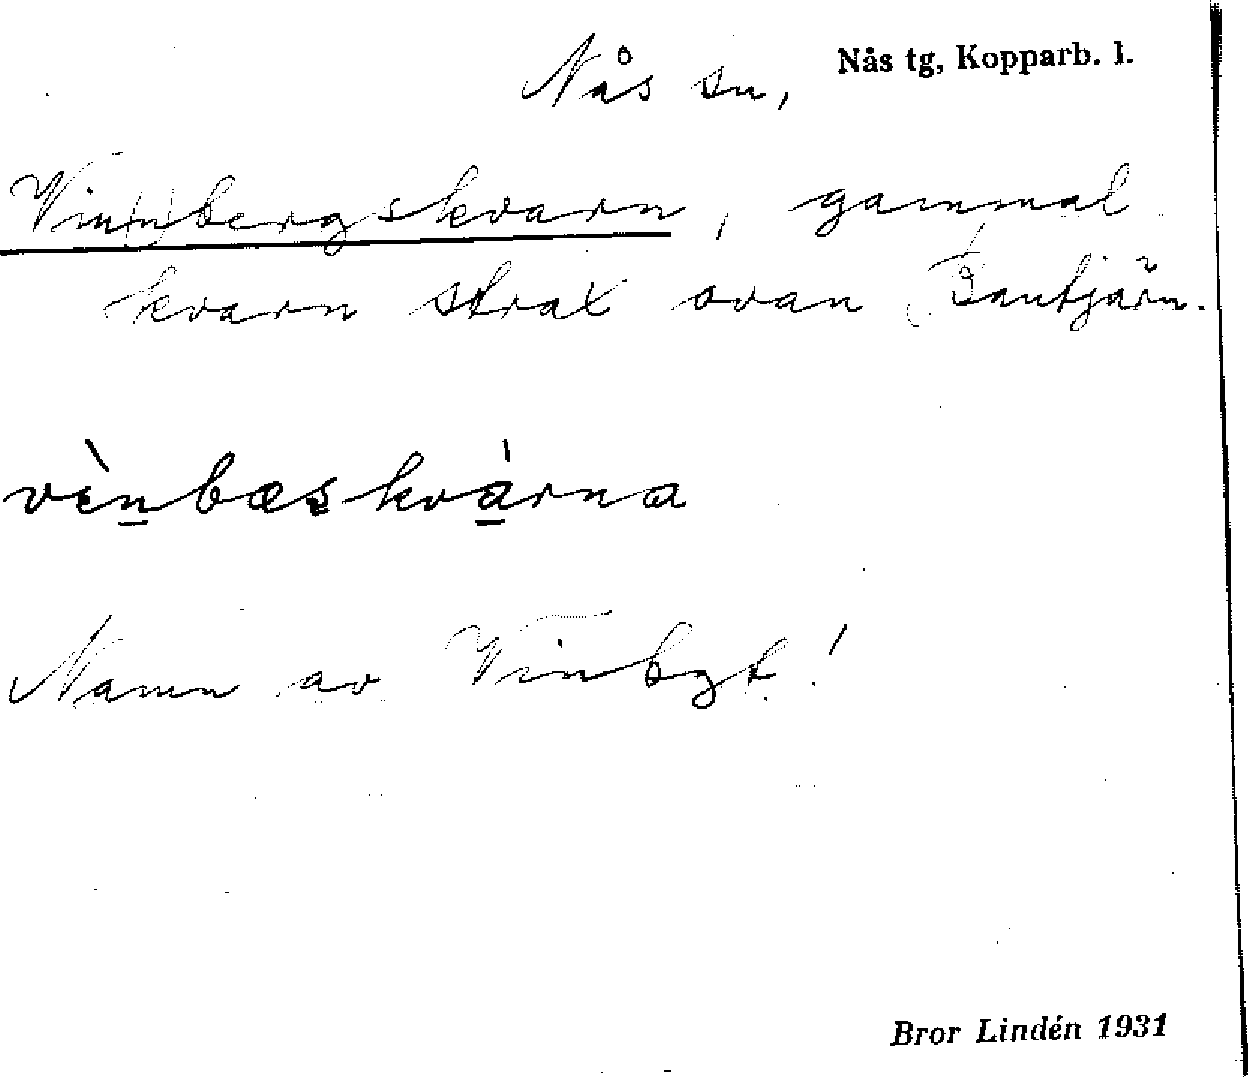 Nås sn, Nås tg, Kopparb. l.
Vin(n)bergskvarn, gammal
kvarn strax ovan
vènbæskvàrna
Namn av Vinbgt!
Bror Lindén 1931